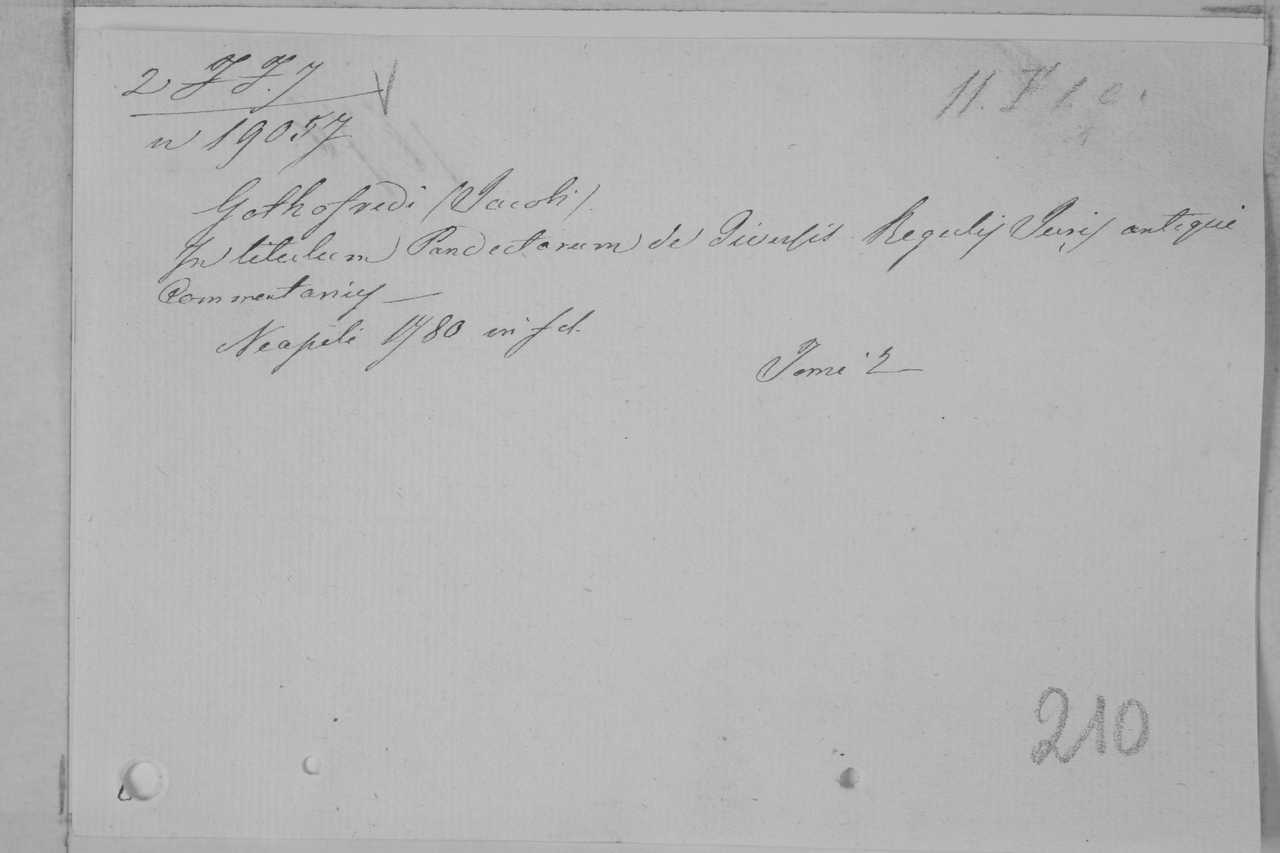 2 II. 7
n 19057
Gothofredi (Jacobi).
In titulum Pandectarum de Diversis Regulis Juris antiqui
Commentarius —
Neapoli 1780 in fol.
Tomi 2
210